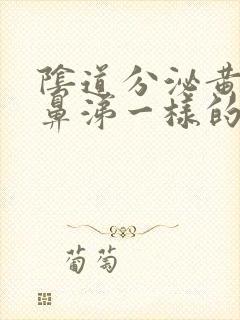 陰道分泌黄
鼻涕一樣的
葡萄